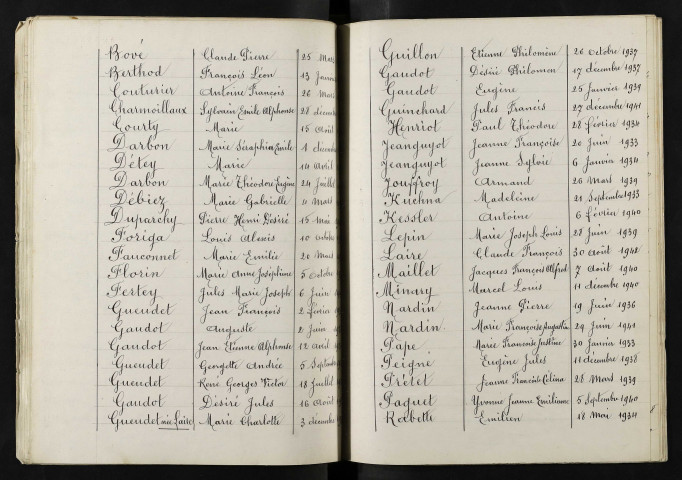 Bové Claude Pierre 25 Mars
Berthod François Léon 13 Janv
Couturier Antoine François 26 Mars
Charmoillaux Sylvain Emile Alphonse 28 décem
Courty Marie 15 Août
Darbon Marie Séraphin Emile 1 décem
Détey Marie 14 Août
Darbon Marie Théodore Eugène 24 Juillet
Débiez Marie Gabrielle 11 Mars
Duparchy Pierre Henri Désiré 15 Mai
Foriga Louis Alexis 10 octobre
Fauconnet Marie Emilie 20 Mars
Florin Marie Anne Joséphine 5 octobre
Fertey Jules Marie Joseph 6 Juin
Gueudet Jean François 2 février
Gaudot Auguste 2 Juin
Gaudot Jean Etienne Alphonse 12 avril
Gueudet Georgette Andrée 5 Septembre
Gueudet René Georges Victor 18 Juillet
Gaudot Désiré Jules 16 Août
Gueudet née Laire Marie Charlotte 3 décembre
Guillon Etienne Philomène 26 octobre 1937
Gaudot Désiré Philomen 17 décembre 1937
Gaudot Eugène 25 Janvier 1939
Guinchard Jules Francis 27 décembre 1941
Henriot Paul Théodore 28 février 1934
Jeanguyot Jeanne Françoise 20 Juin 1933
Jeanguyot Jeanne Sylvie 6 Janvier 1934
Jouffroy Armand 26 Mars 1939
Kuchna Madeleine 21 Septembre 1933
Kessler Antoine 6 février 1940
Lepin Marie Joseph Louis 28 Juin 1939
Laire Claude François 30 août 1942
Maillet Jacques François Alfred 7 Août 1940
Minary Marcel Louis 11 décembre 1940
Nardin Jeanne Pierre 19 Juin 1936
Nardin Marie Françoise Augustin 29 Juin 1941
Pape Marie Françoise Justine 30 Janvier 1933
Peigné Eugène Jules 11 décembre 1938
Prétet Jeanne Françoise Célina 28 Mars 1939
Paquet Yvonne Jeanne Emilienne 5 Septembre 1940
Rebette Emilien 18 Mai 1934